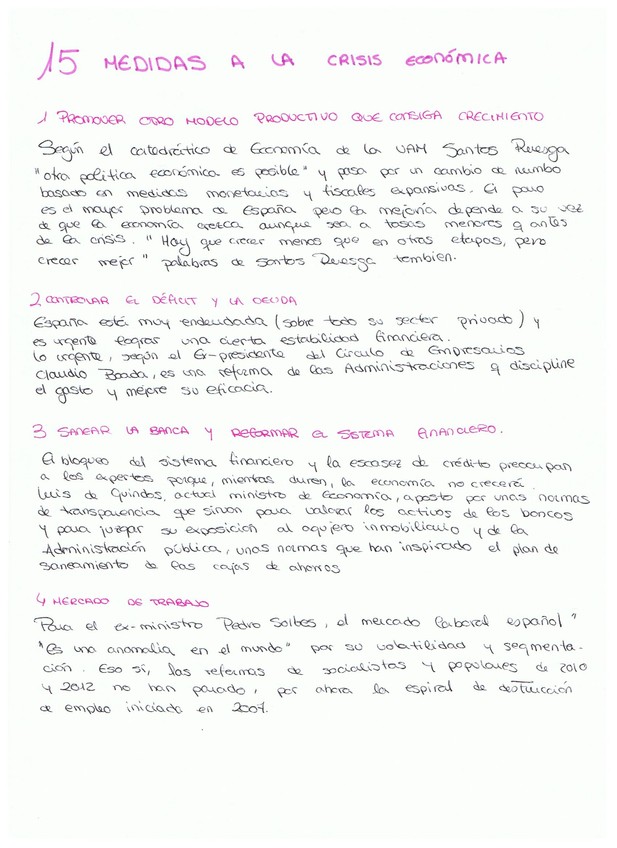 15 MEDIDAS A LA CRISIS ECONÓMICA
1 PROMOVER OTRO MODELO PRODUCTIVO QUE CONSIGA CRECIMIENTO
Según el catedrático de Economía de la UAM Santos Ruesga
"otra política económica es posible" y pasa por un cambio de rumbo
basado en medidas monetarias y fiscales expansivas. El paro
es el mayor problema de España pero la mejoría depende a su vez
de que la economía crezca aunque sea a tasas menores q antes
de la crisis. "Hay que crecer menos que en otras etapas, pero
crecer mejor" palabras de Santos Ruesga tambien.
2 CONTROLAR EL DÉFICIT Y LA DEUDA
España está muy endeudada (sobre todo su sector privado) y
es urgente lograr una cierta estabilidad financiera.
Lo urgente, según el Ex-presidente del Círculo de Empresarios
Claudio Boada, es una reforma de las Administraciones q discipline
el gasto y mejore su eficacia.
3 SANEAR LA BANCA Y REFORMAR EL SISTEMA FINANCIERO.
El bloqueo del sistema financiero y la escasez de crédito preocupan
a los expertos porque, mientras duren, la economía no crecerá.
Luis de Guindos, actual ministro de Economía, aposto por unas normas
de transparencia que sirvan para valorar los activos de los bancos
y para juzgar su exposición al agujero inmobiliario y de la
Administración pública, unas normas que han inspirado el plan de
saneamiento de las cajas de ahorros
4 MERCADO DE TRABAJO
Para el ex-ministro Pedro Solbes, el mercado laboral español "
"Es una anomalia en el mundo" por su volatilidad y segmenta-
ción. Eso sí, las reformas de socialistas y populares de 2010
y 2012 no han parado, por ahora la espiral de destrucción
de empleo iniciada en 2007.